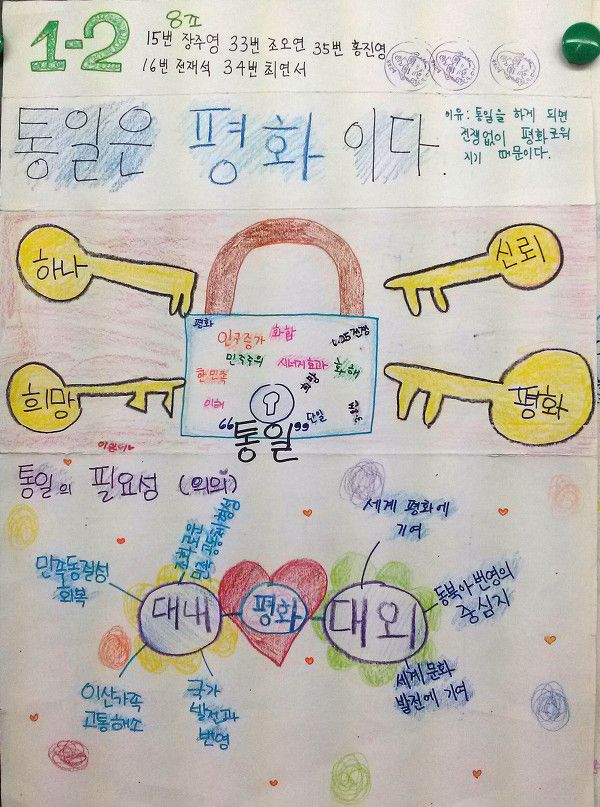 1-2
8조
15번 장주영 33번 조오연 35번 홍진영
16번 전재석 34번 최연서
통일은 평화 이다.
이유: 통일을 하게 되면
전쟁없이 평화로워
지기 때문이다.
하나
신뢰
희망
평화
평화
인구증가
화합
6.25전쟁
민주주의
시너지효과
화해
한민족
희망
이해
단일
“통일”
통일의 필요성 (의의)
민족동질성
회복
조화로운
민족 공동체형성
대내
평화
대외
이산가족
고통해소
국가
발전과
번영
세계 평화에
기여
동북아 번영의
중심지
세계 문화
발전에 기여